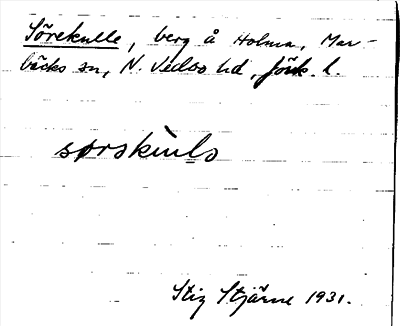 Sörekulle, berg å Holma, Mar-
bäcks sn, N. Vedbo hd, Jönk. l.
Stig Stjärne 1931.